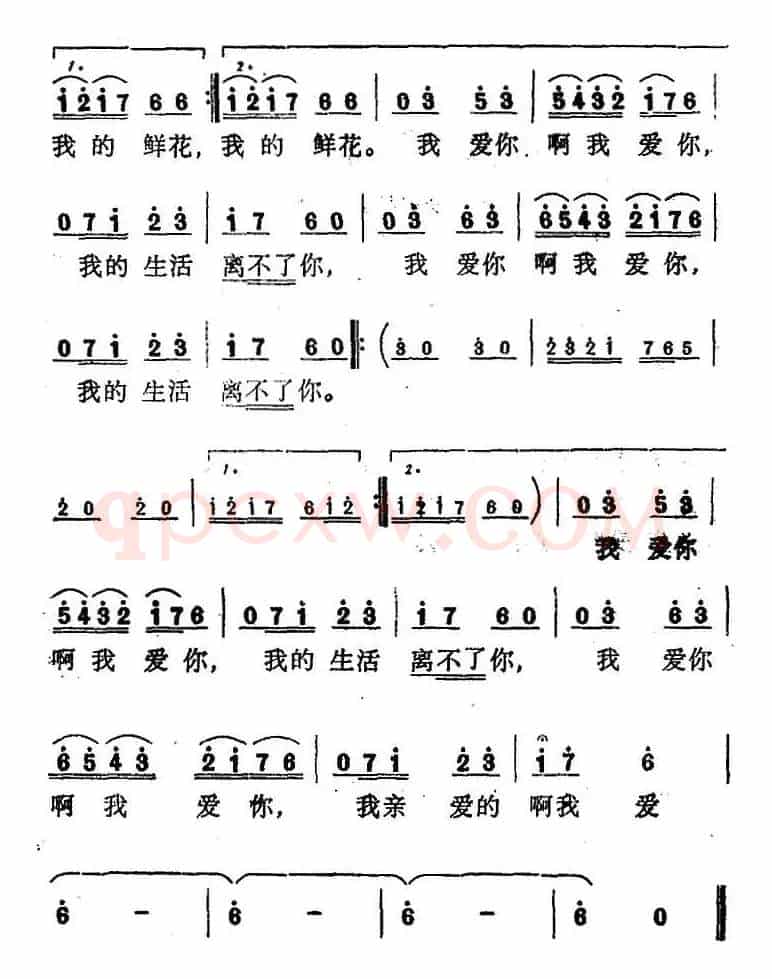 1.  2.
1̇2̇1̇7 66 :‖ 1̇2̇1̇7 66 | 03̇ 5̇3̇ | 5̇4̇3̇2̇ 1̇76 |
我的 鲜花, 我的 鲜花。 我 爱你 啊我 爱你,
071̇ 2̇3̇ | 1̇7 60 | 03̇ 6̇3̇ | 6̇5̇4̇3̇ 2̇1̇76 |
我的 生活 离不了你, 我 爱你 啊我 爱你,
071̇ 2̇3̇ | 1̇7 60 :‖ (3̇0 3̇0 | 2̇3̇2̇1̇ 765 |
我的 生活 离不了你。
1.  2.
2̇0 2̇0 | 1̇2̇1̇7 61̇2̇ :‖ 1̇2̇1̇7 60) | 03̇ 5̇3̇ |
我 爱你
qpcxw.COM
5̇4̇3̇2̇ 1̇76 | 071̇ 2̇3̇ | 1̇7 60 | 03̇ 6̇3̇ |
啊我 爱你, 我的 生活 离不了你, 我 爱你
6̇5̇4̇3̇ 2̇1̇76 | 071̇ 2̇3̇ | 1̇7̇ 6̇ |
啊我 爱你, 我亲 爱的 啊我 爱
6̇ - | 6̇ - | 6̇ - | 6̇ 0 ‖